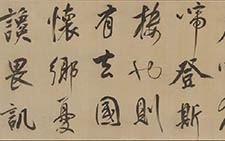 啼登斯
樓也則
有去國
懷鄉憂
讒畏譏